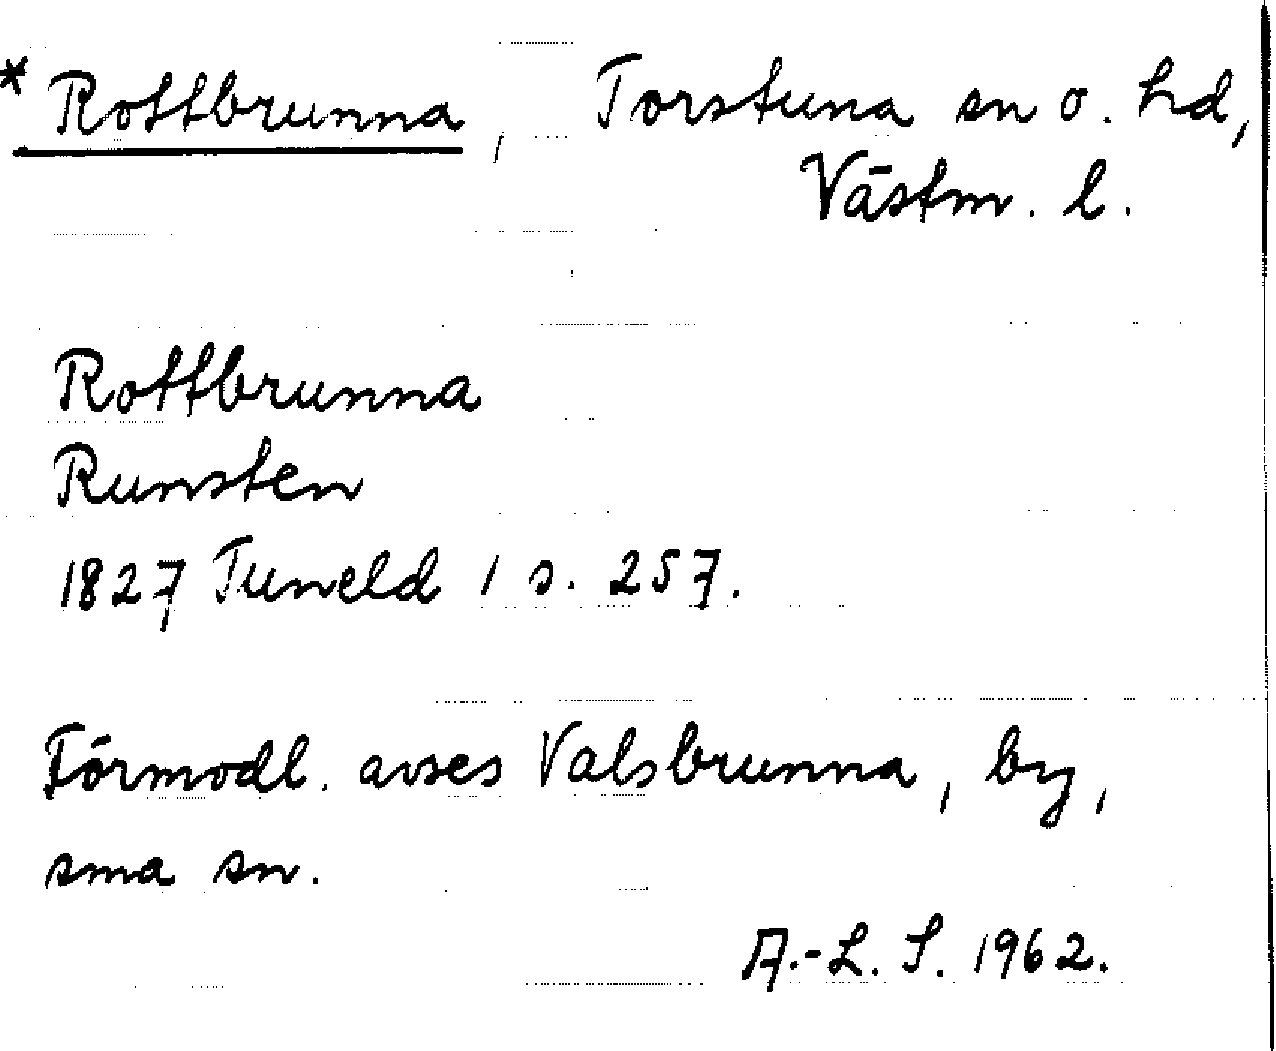 * Rottbrunna, Torstuna sn o. hd,
Västm. l.
Rottbrunna
Runsten
1827 Tuneld 1 s. 257.
Förmodl. avses Valsbrunna, by,
sma sn.
A.-L. S. 1962.